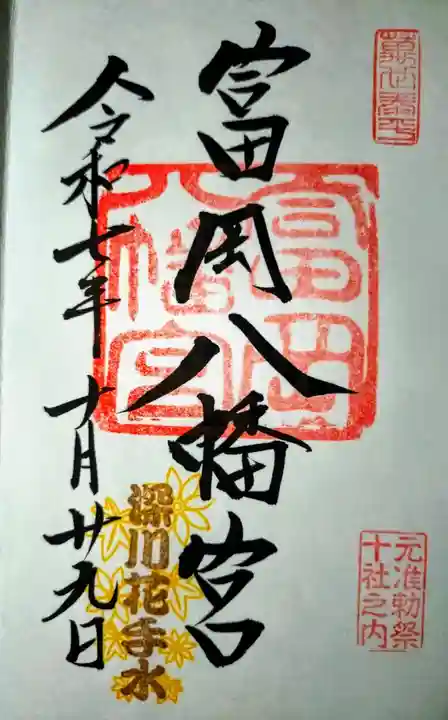 萬世泰平
富岡八幡宮
富岡八幡宮
元准勅祭
十社之内
深川花手水
令和七年十月廿九日